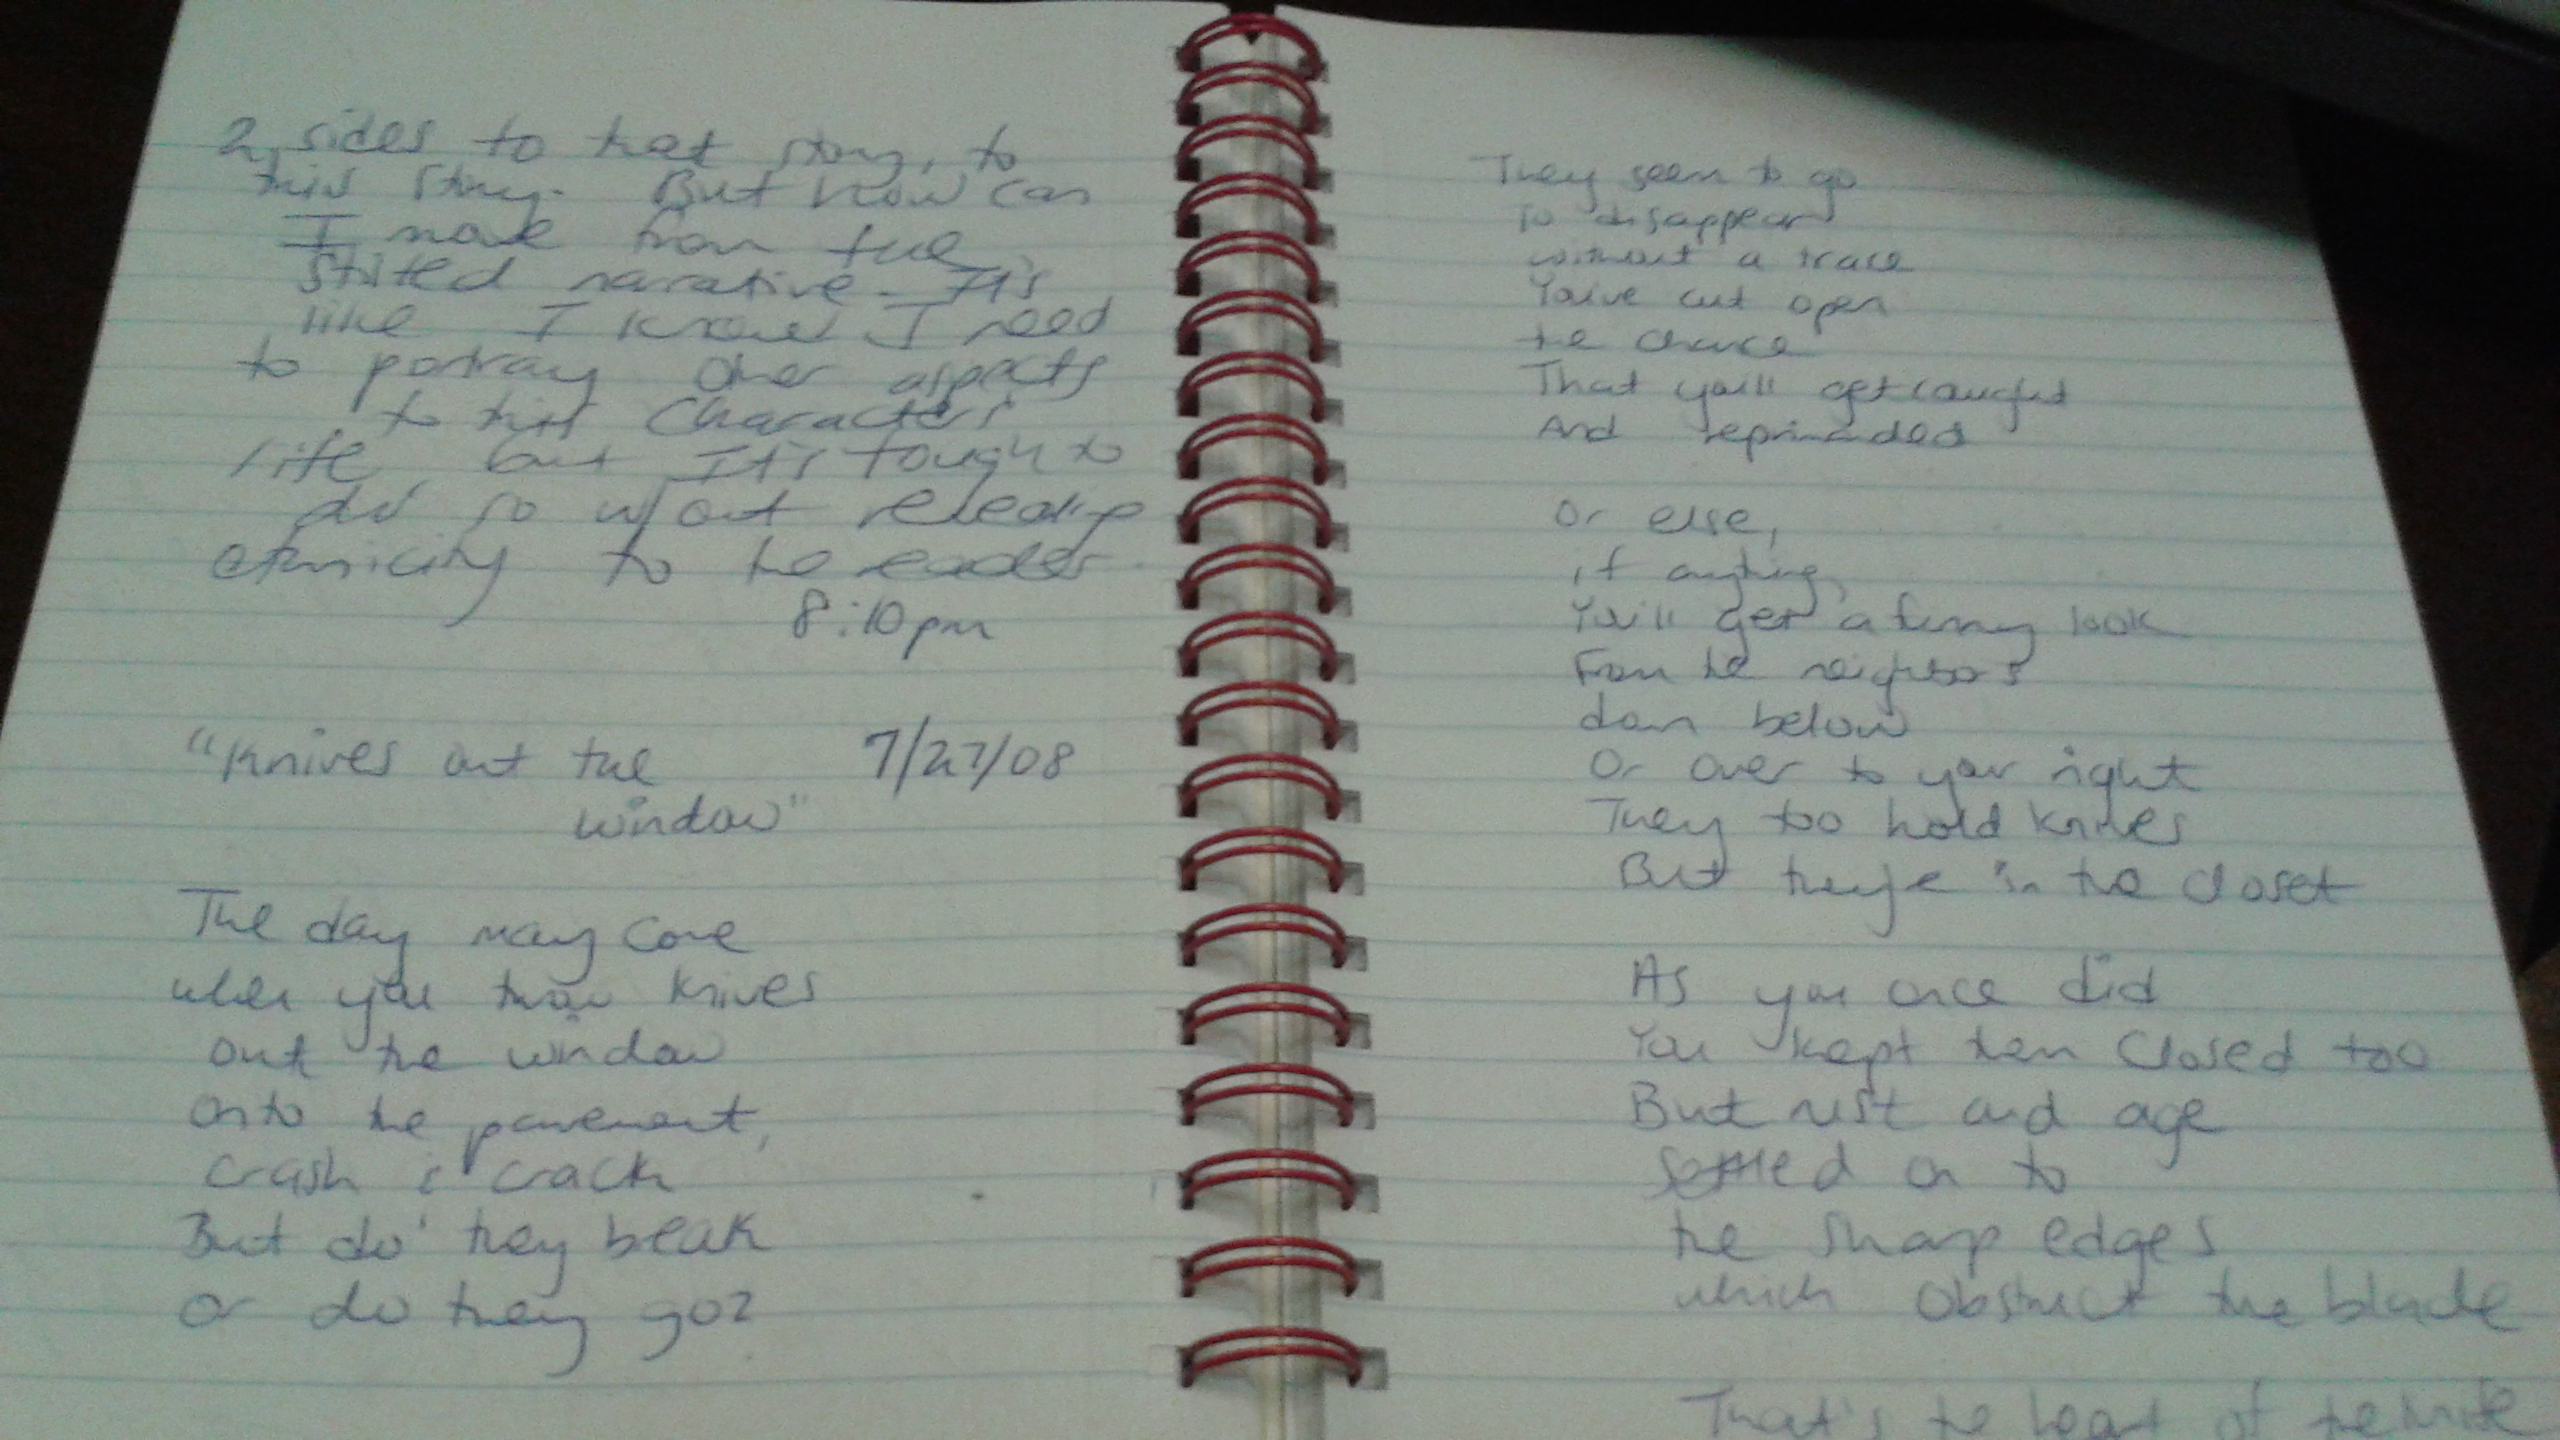 2 sides to that story, to
this story. But how can
I move from the
stilted narrative. It's
like I know I need
to portray other aspects
to this character's
life, but It's tough to
do so w/out revealing
ethnicity to the reader.
8:10pm
"Knives out the 7/27/08
window"
The day may come
when you throw knives
out the window
onto the pavement,
crash & crack
But do they break
or do they go?
They seem to go
To disappear
without a trace
You've cut open
the chance
That you'll get caught
And reprimanded
Or else,
if anything,
You'll get a funny look
From the neighbors
down below
Or over to your right
They too hold knives
But they're in the closet
As you once did
You kept them closed too
But rust and age
settled on to
the sharp edges
which obstruct the blade
That's the heart of the knife